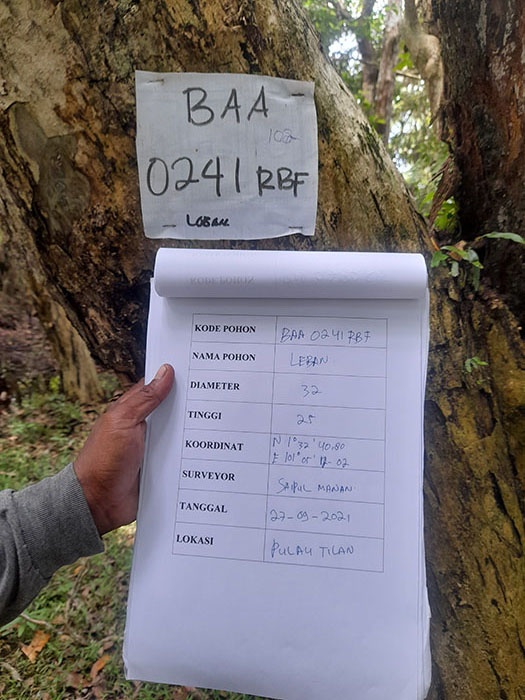 BAA
102
0241 RBF
LOBAN
KODE POHON BAA 0241 RBF
NAMA POHON LEBAN
DIAMETER 32
TINGGI 25
KOORDINAT N 1° 32' 40.80
E 101° 05' 12.02
SURVEYOR SAIPUL MANAN
TANGGAL 27-09-2021
LOKASI PULAU TILAN